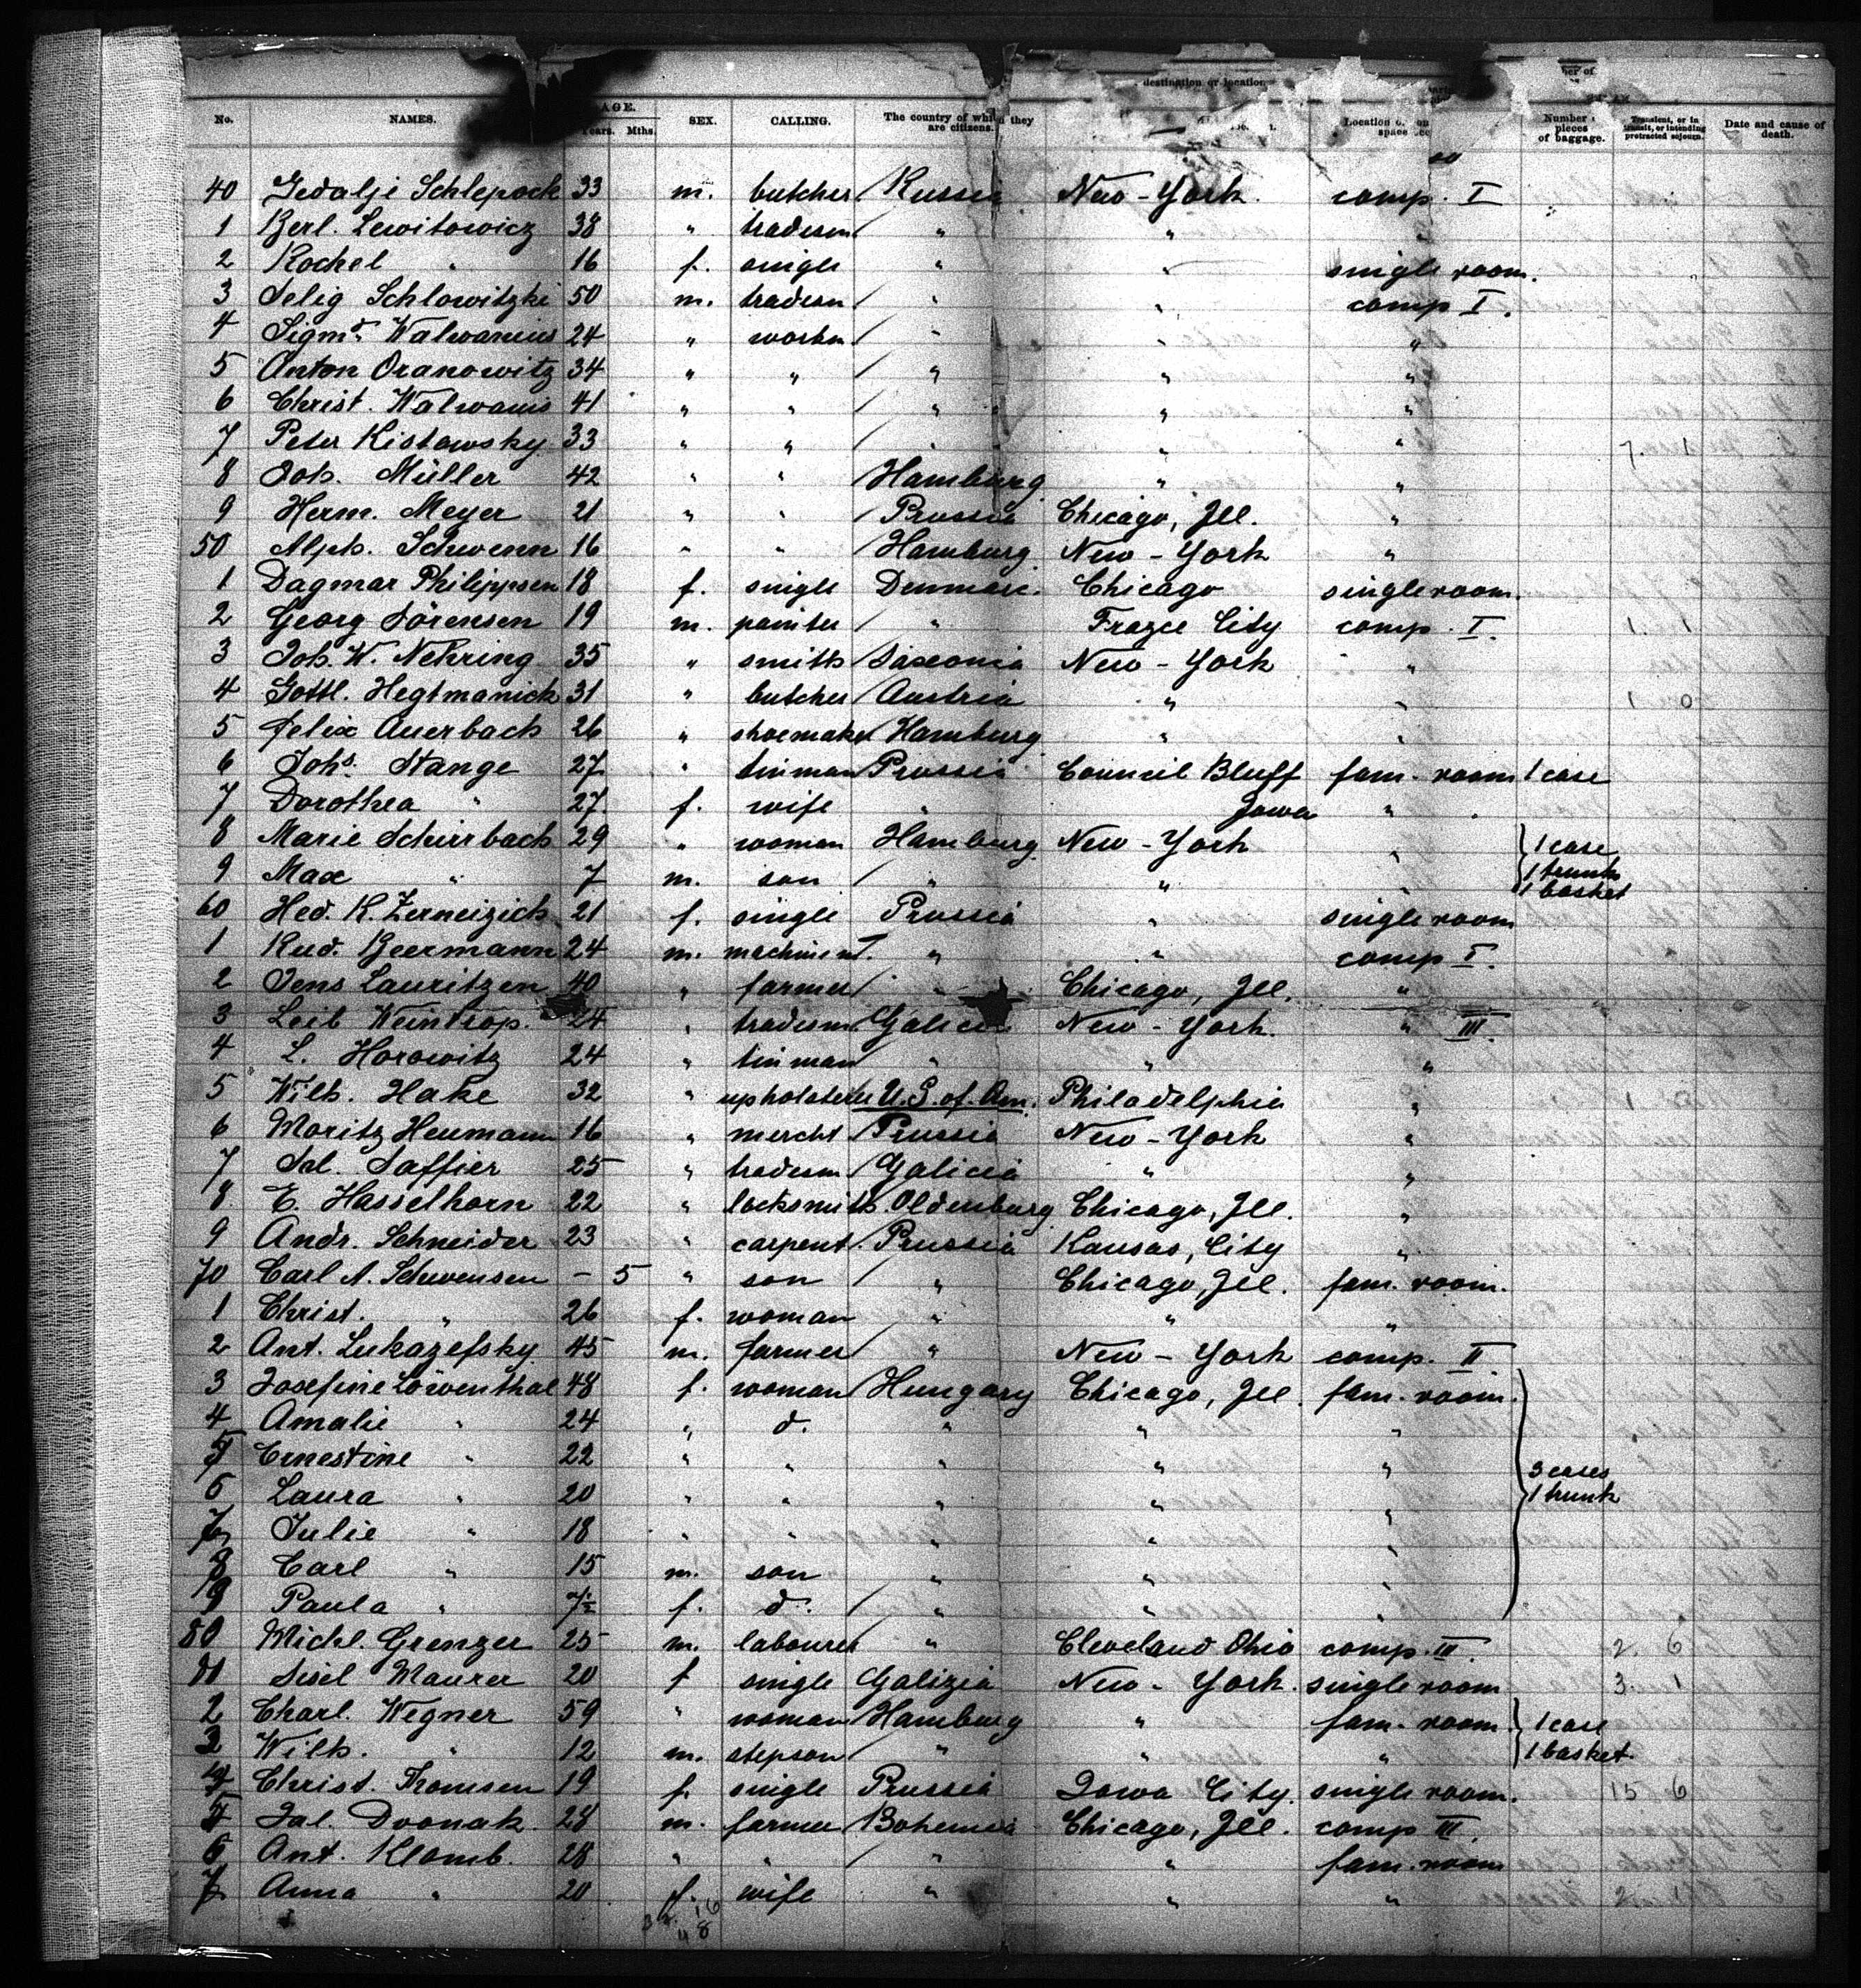 destination or location
No. NAMES. AGE. Years. Mths. SEX. CALLING. The country of which they are citizens. Location of space Number pieces of baggage. Transient, or in transit, or intending protracted sojourn. Date and cause of death.
40 Gedalje Schlepock 33 m. butcher Russia New-York. comp. I
1 Berl. Lewitowicz 38 " tradesm " " "
2 Rochel " 16 f. single " " single room.
3 Selig Schlowitzki 50 m. tradesm " " comp I.
4 Sigmd. Walwanius 24 " workm " " "
5 Anton Oranowitz 34 " " " " "
6 Christ. Walwanis 41 " " " " "
7 Peter Kistowsky 33 " " " " "
8 Joh. Müller 42 " " Hamburg " "
9 Herm. Meyer 21 " " Prussia Chicago, Ill. "
50 Alph. Schwenn 16 " " Hamburg New-York "
1 Dagmar Philippsen 18 f. single Denmark. Chicago single room.
2 Georg Sörensen 19 m. painter " Frazee City comp. I.
3 Joh. W. Nehring 35 " smith Saxonia New-York "
4 Gottl. Hegtmanick 31 " butcher Austria " "
5 Felix Auerbach 26 " shoemaker Hamburg " "
6 Johs. Stange 27 " tinman Prussia Council Bluff fam. room 1 case
7 Dorothea " 27 f. wife " Iowa "
8 Marie Schirrbach 29 " woman Hamburg New-York " 1 case
9 Max " 7 m. son " " " 1 trunk
1 basket
60 Hed. K. Zerneizich 21 f. single Prussia " single room
1 Rud. Beermann 24 m. machinist. " " comp I.
2 Jens Lauritzen 40 " farmer " Chicago, Ill. "
3 Leib Weintrop. 24 " tradesm Galicia New-York. " III.
4 L. Horowitz 24 " tinman " " "
5 Wilh. Hake 32 " upholsterer U.S. of Am. Philadelphia "
6 Moritz Heumann 16 " mercht Prussia New-York "
7 Sal. Saffier 25 " tradesm Galicia " "
8 E. Hasselhorn 22 " locksmith. Oldenburg Chicago, Ill. "
9 Andr. Schneider 23 " carpent. Prussia Kansas, City "
70 Carl A. Schwensen - 5 " son " Chicago, Ill. fam. room.
1 Christ. " 26 f. woman " " "
2 Ant. Lukazefsky 45 m. farmer " New-York comp. II
3 Josefine Löwenthal 48 f. woman Hungary Chicago, Ill. fam. room.
4 Amalie " 24 " d. " " "
5 Ernestine " 22 " " " " "
6 Laura " 20 " " " " " 3 cases 1 trunk
7 Julie " 18 " " " " "
8 Carl " 15 m. son " " "
9 Paula " 7½ f. d. " " "
80 Michl. Grenzer 25 m. labourer " Cleveland Ohio comp. III 2. 6
1 Sisel Maurer 20 f single Galizia New-York. single room 3. 1
2 Charl. Wegner 59 " woman Hamburg " fam. room. 1 case
3 Wilh. " 12 m. stepson " " " 1 basket.
4 Christ. Thomsen 19 f. single Prussia Iowa City. single room. 15 6
5 Jal. Dvonak. 28 m. farmer Bohemia Chicago, Ill. comp III.
6 Ant. Klomb. 28 " " " " fam. room
7 Anna " 20 f. wife " " "